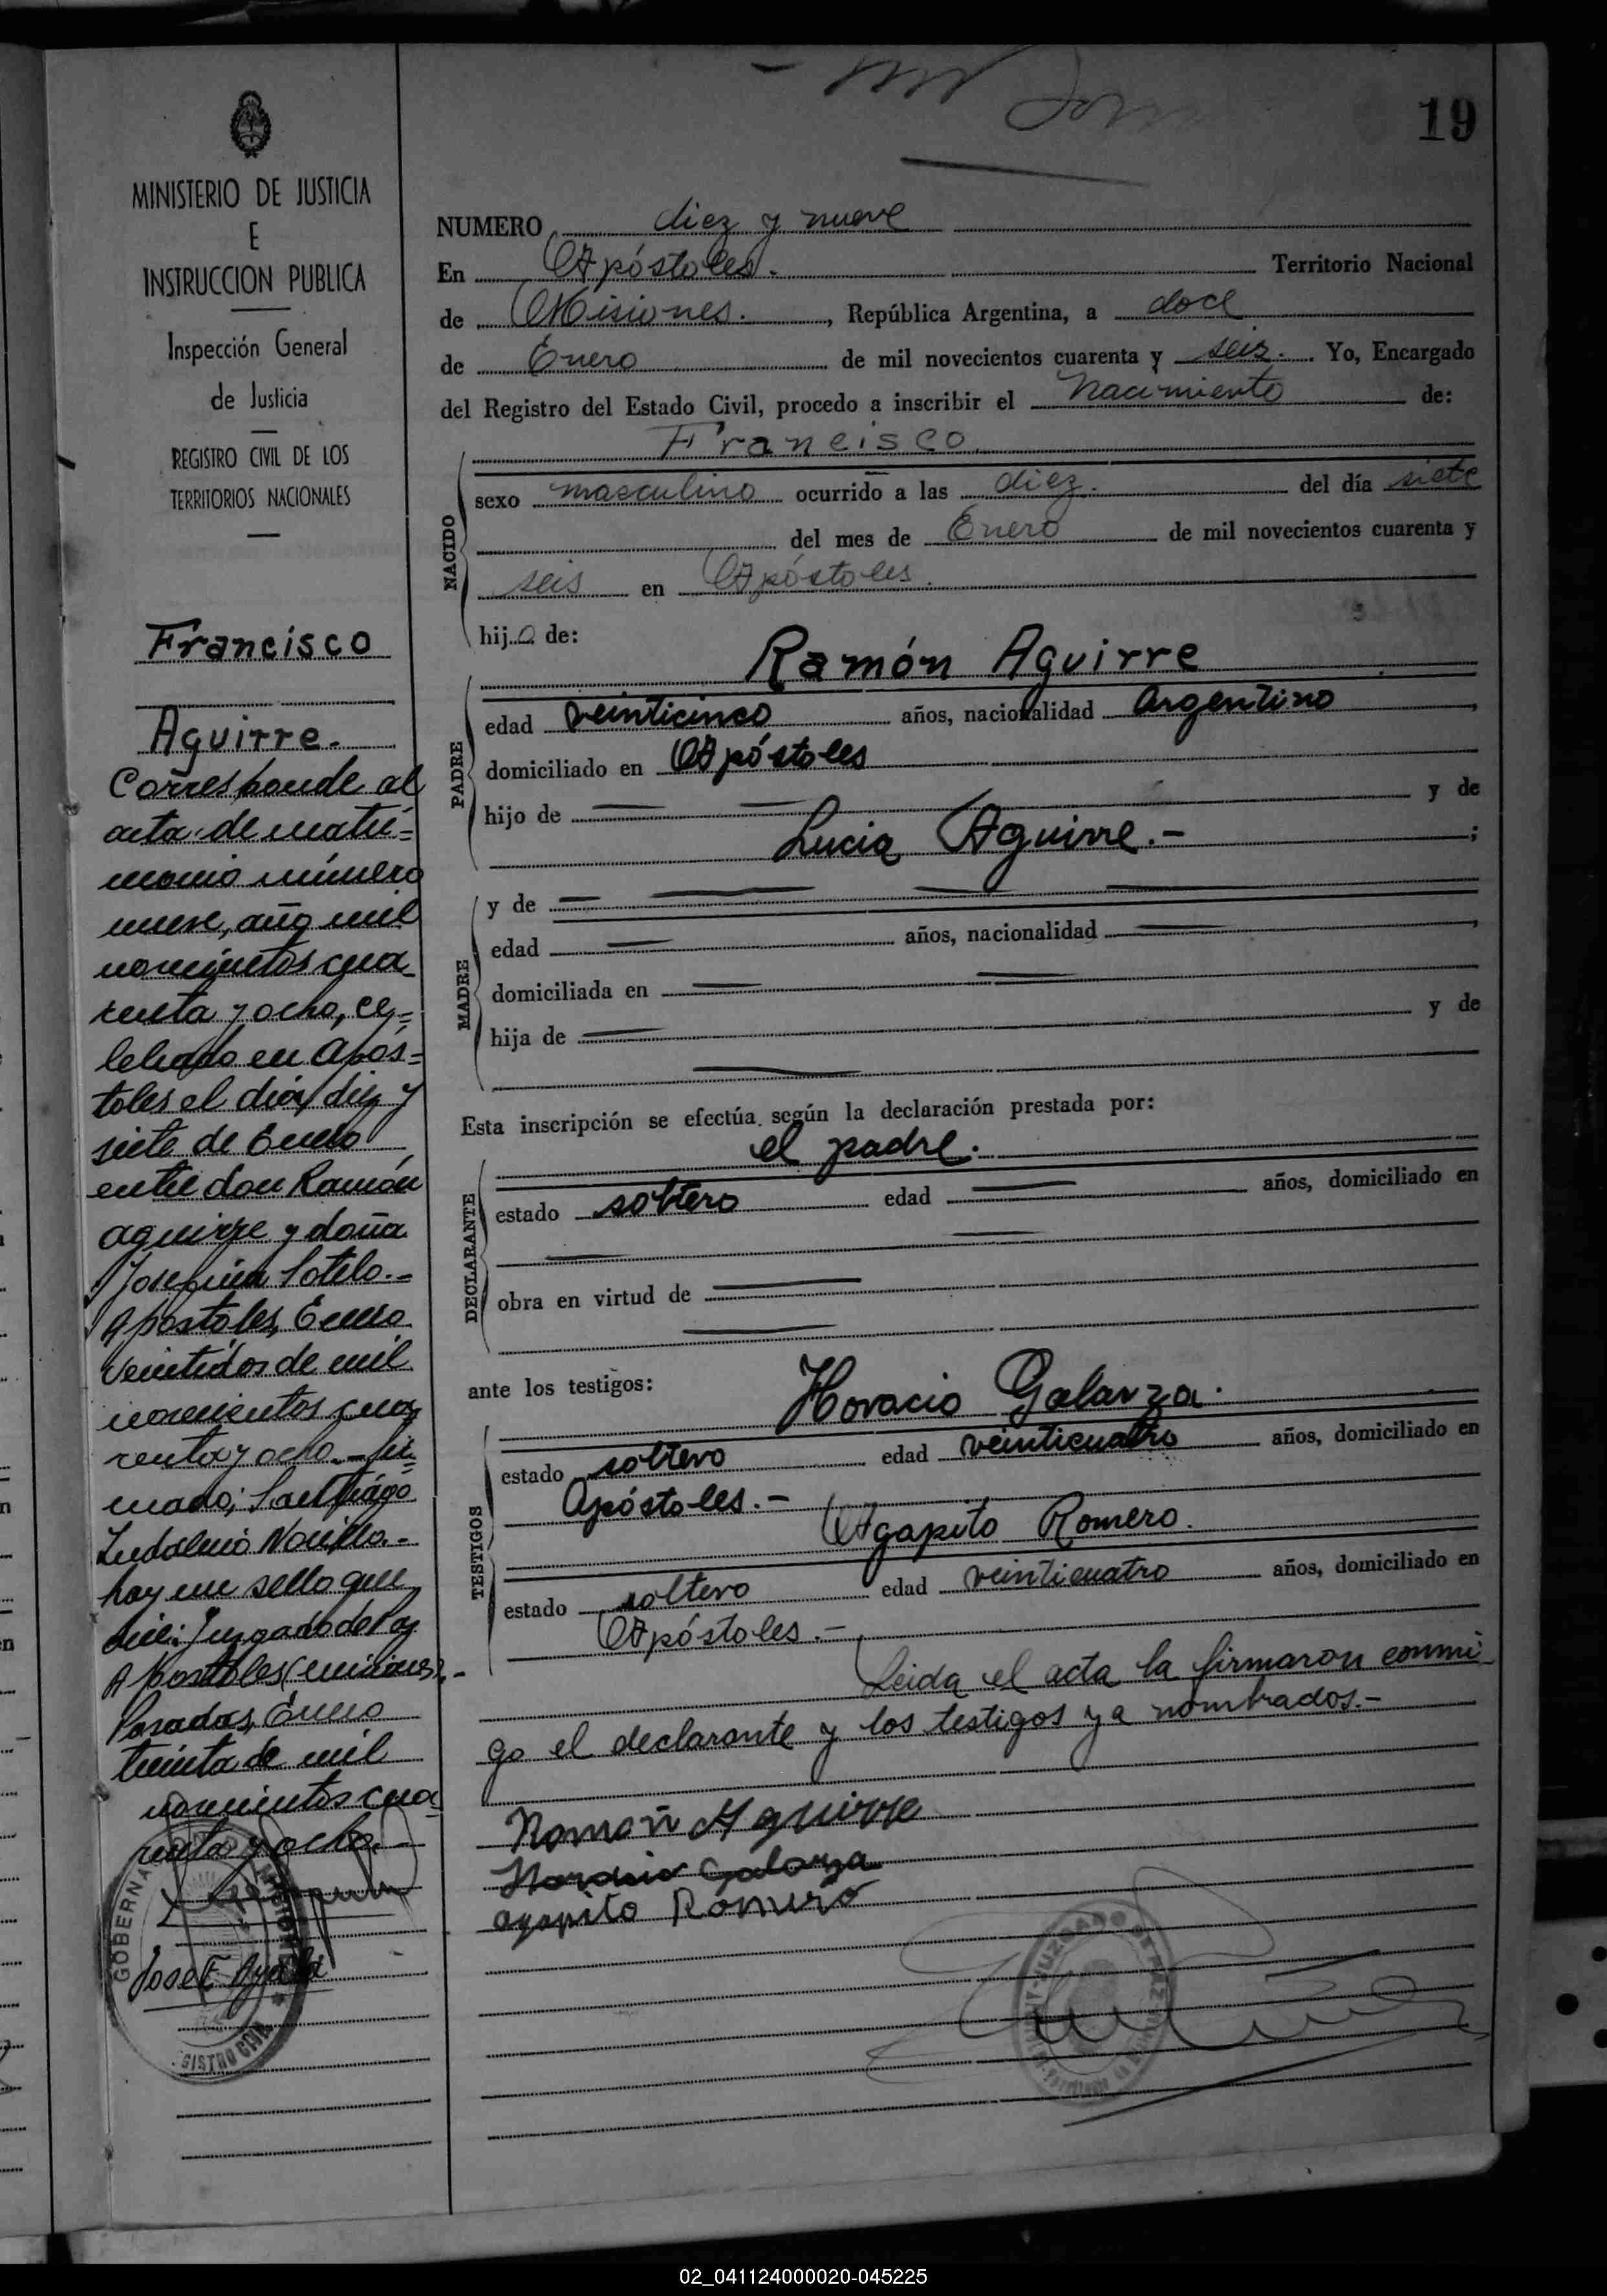 19
MINISTERIO DE JUSTICIA
E
INSTRUCCION PUBLICA
Inspección General
de Justicia
REGISTRO CIVIL DE LOS
TERRITORIOS NACIONALES
Francisco
Aguirre.
Corresponde al
acta de matri=
monio número
nueve, año mil
novecientos cua
renta y ocho, ce=
lebrado en Após=
toles el día diez y
siete de Enero
entre don Ramón
Aguirre y doña
Josefina Sotelo.-
Apostoles, Enero
veintidos de mil
novecientos cua
renta y ocho.- fir
mado; Santiago
hay un sello que
dice: Juzgado de Paz
Apostoles (misiones).-
Posadas, Enero
treinta de mil
novecientos cua
renta y ocho.-
Jose E Ayala
GOBERNA
MISIONES
GISTRO CIVIL
NUMERO diez y nueve
En Apóstoles. Territorio Nacional
de Misiones. , República Argentina, a doce
de Enero de mil novecientos cuarenta y seis. Yo, Encargado
del Registro del Estado Civil, procedo a inscribir el Nacimiento de:
Francisco
NACIDO
sexo masculino ocurrido a las diez. del día siete
del mes de Enero de mil novecientos cuarenta y
seis en Apóstoles.
hijo de:
Ramón Aguirre
PADRE
edad veinticinco años, nacionalidad Argentino ,
domiciliado en Apóstoles
hijo de y de
Lucia Aguirre.- ;
MADRE
y de
edad años, nacionalidad ,
domiciliada en
hija de y de
Esta inscripción se efectúa según la declaración prestada por:
el padre.
DECLARANTE
estado soltero edad años, domiciliado en
obra en virtud de
ante los testigos:
Horacio Galarza.
TESTIGOS
estado soltero edad veinticuatro años, domiciliado en
Apóstoles.-
Agapito Romero.
estado soltero edad veinticuatro años, domiciliado en
Apóstoles.-
Leida el acta la firmaron conmi
go el declarante y los testigos ya nombrados.-
Ramon Aguirre
Horasio Galarza
agapito Romero
JUZGADO DE PAZ
02_041124000020-045225